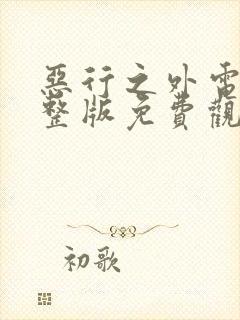 惡行之外電
整版免費觀
初歌